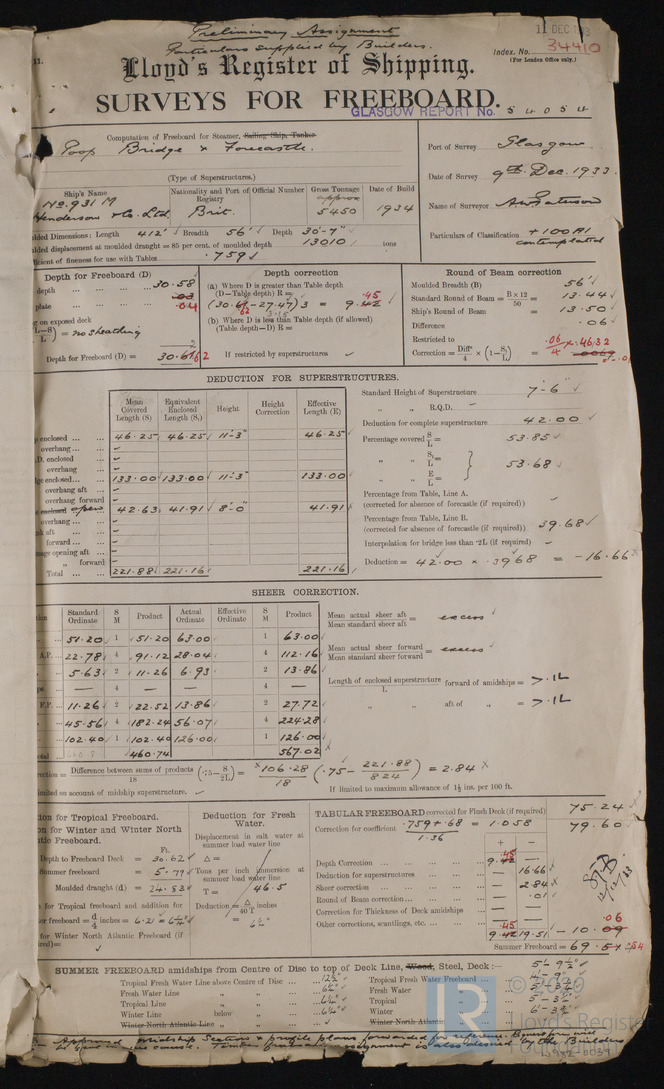 Preliminary Assignment
Particulars supplied by Builders.
11 DEC 193
Index. No. 34410
(For London Office only.)
11.
Lloyd's Register of Shipping.
SURVEYS FOR FREEBOARD.
GLASGOW REPORT No. 54054
Computation of Freeboard for Steamer, Sailing Ship, Tanker
Poop Bridge & Forecastle.
(Type of Superstructures.)
Port of Survey Glasgow
Date of Survey 9th Dec. 1933.
Name of Surveyor
Particulars of Classification +100A1
contemplated
Ship's Name Nationality and Port of Registry Official Number Gross Tonnage Date of Build
approx
No. 931 M
Henderson & Co. Ltd Brit. 5450 1934
Dimensions: Length 412' Breadth 56' Depth 30'-7"
displacement at moulded draught = 85 per cent. of moulded depth 13010 tons
of fineness for use with Tables .759
Depth for Freeboard (D)
depth 30.58
plate .04
on exposed deck
= no sheathing
Depth for Freeboard (D) = 30.62
Depth correction
(a) Where D is greater than Table depth
(D—Table depth) R =
(30.62-27.47)3 = 9.45
(b) Where D is less than Table depth (if allowed)
(Table depth—D) R =
If restricted by superstructures
Round of Beam correction
Moulded Breadth (B) 56'
Standard Round of Beam = B×12/50 = 13.44
Ship's Round of Beam = 13.50
Difference .06
Restricted to
Correction = Diff/4 × (1-S/L) = .06/4 × .4632
DEDUCTION FOR SUPERSTRUCTURES.
Mean Covered Length (S) Equivalent Enclosed Length (S₁) Height Height Correction Effective Length (E)
enclosed 46.25 46.25 11'-3" 46.25
overhang
enclosed
overhang
enclosed 133.00 133.00 11'-3" 133.00
overhang aft
overhang forward
enclosed open 42.63 41.91 8'-0" 41.91
overhang
aft
forward
opening aft
forward
Total 221.88 221.16 221.16
Standard Height of Superstructure 7'-6"
" " R.Q.D. -
Deduction for complete superstructure 42.00
Percentage covered S/L = 53.85
" " S₁/L =
" " E/L = 53.68
Percentage from Table, Line A.
(corrected for absence of forecastle (if required))
Percentage from Table, Line B. 39.68
(corrected for absence of forecastle (if required))
Interpolation for bridge less than ·2L (if required)
Deduction = 42.00 × .3968 = -16.66
SHEER CORRECTION.
Standard Ordinate S M Product Actual Ordinate Effective Ordinate S M Product
51.20 1 51.20 63.00 1 63.00
A.P. 22.78 4 91.12 28.04 4 112.16
5.63 2 11.26 6.93 2 13.86
— 4 — — 4 —
F.P. 11.26 2 22.52 13.86 2 27.72
45.56 4 182.24 56.07 4 224.28
102.40 1 102.40 126.00 1 126.00
460.74 567.02
Mean actual sheer aft / Mean standard sheer aft = excess
Mean actual sheer forward / Mean standard sheer forward = excess
Length of enclosed superstructure / L forward of amidships = >.1L
" " aft of " = >.1L
= Difference between sums of products / 18 (·75-S/2L) = 106.28/18 (.75-221.88/824) = 2.84
on account of midship superstructure.
If limited to maximum allowance of 1½ ins. per 100 ft.
for Tropical Freeboard.
for Winter and Winter North
Freeboard.
Ft.
Depth to Freeboard Deck = 30.62
Summer freeboard = 5.79
Moulded draught (d) = 24.83
for Tropical freeboard and addition for
freeboard = d/4 inches = 6.21 = 6¼"
for Winter North Atlantic Freeboard (if
Deduction for Fresh Water.
Displacement in salt water at
summer load water line
Δ =
Tons per inch immersion at
summer load water line
T = 46.5
Deduction = Δ/40T inches
= 6½"
TABULAR FREEBOARD corrected for Flush Deck (if required) 75.24
Correction for coefficient .759+.68/1.36 = 1.058 79.60
+ −
Depth Correction 9.45
Deduction for superstructures — 16.66
Sheer correction — 2.84
Round of Beam correction — .01
Correction for Thickness of Deck amidships — —
Other corrections, scantlings, etc.
9.45 19.51 - 10.06
Summer Freeboard = 69.54
12/12/33
SUMMER FREEBOARD amidships from Centre of Disc to top of Deck Line, Wood, Steel, Deck :— 5'-9½"
Tropical Fresh Water Line above Centre of Disc 12¾"
Fresh Water Line " " 6½"
Tropical Line " " 6¼"
Winter Line below " 6¼"
Winter North Atlantic Line " "
Tropical Fresh Water Freeboard 4'-9"
Fresh Water " 5'-3"
Tropical " 5'-3¼"
Winter " 6'-3¾"
Winter North Atlantic "
Approved Midship Section & profile plans forwarded for
LR
© 2020
Lloyd's Register